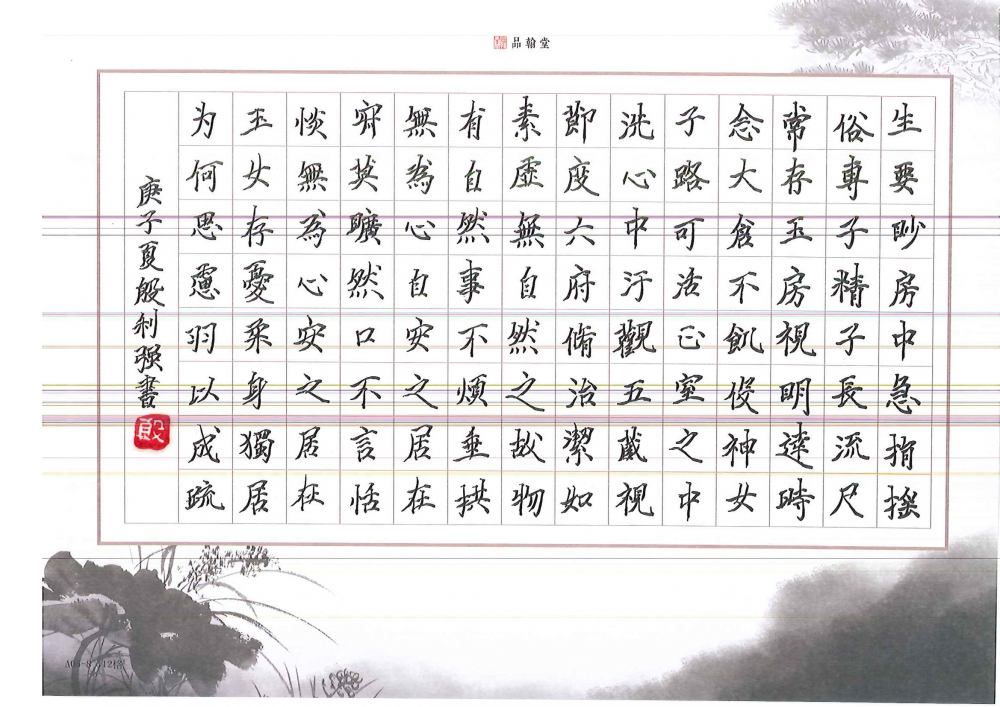 品翰堂
生要眇房中急指揺
俗專子精子長流尺
常存玉房視明達時
念大倉不飢伇神女
子路可活正室之中
洗心中汙觀五藏視
節度六府脩治潔如
素虛無自然之故物
有自然事不煩垂拱
無為心自安之居在
莫曠然口不言恬
惔無為心安之居在
玉女存憂柔身獨居
为何思慮羽以成疏
庚子夏殷利强書
殷